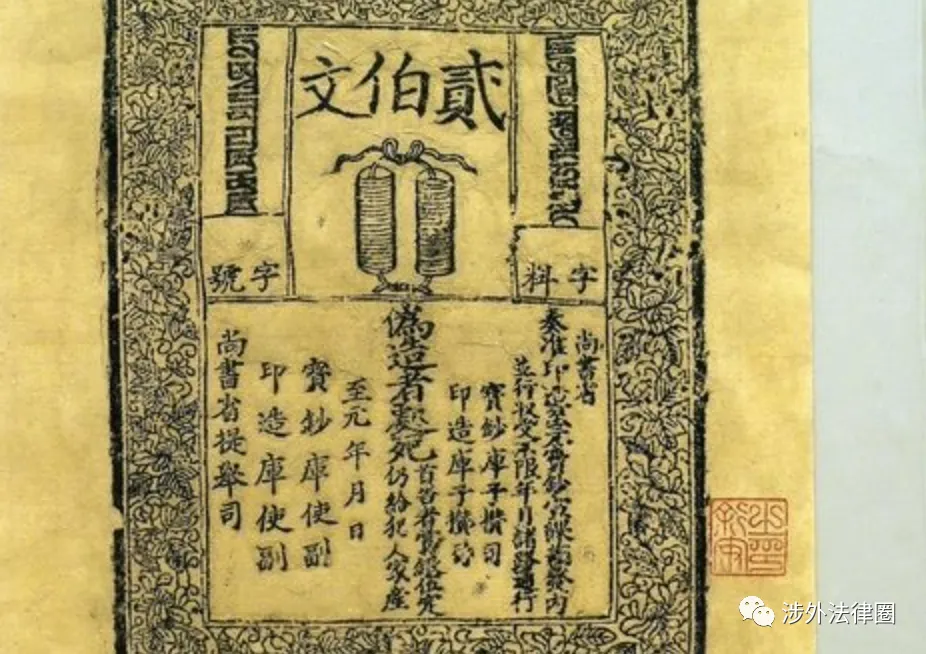 貳伯文
字料
字號
尚書省
奏准印造至元寶鈔宣課差內
並行收受不限年月諸路通行
寶鈔庫子攢司
印造庫子攢司
偽造者處死
首告者賞銀伍定
仍給犯人家產
至元年月日
寶鈔庫使副
印造庫使副
尚書省提舉司
涉外法律圈